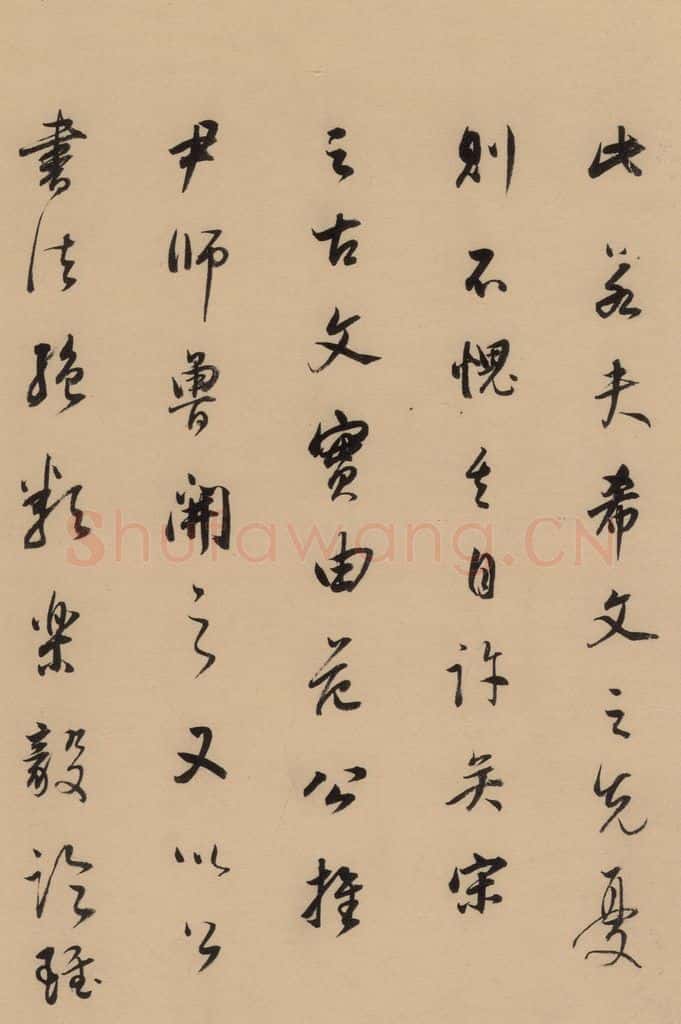 此若夫希文之先憂
則不愧其自許矣宋
之古文實由范公推
尹師魯開之又以公
書法絕類樂毅論雖
Shufawang.CN